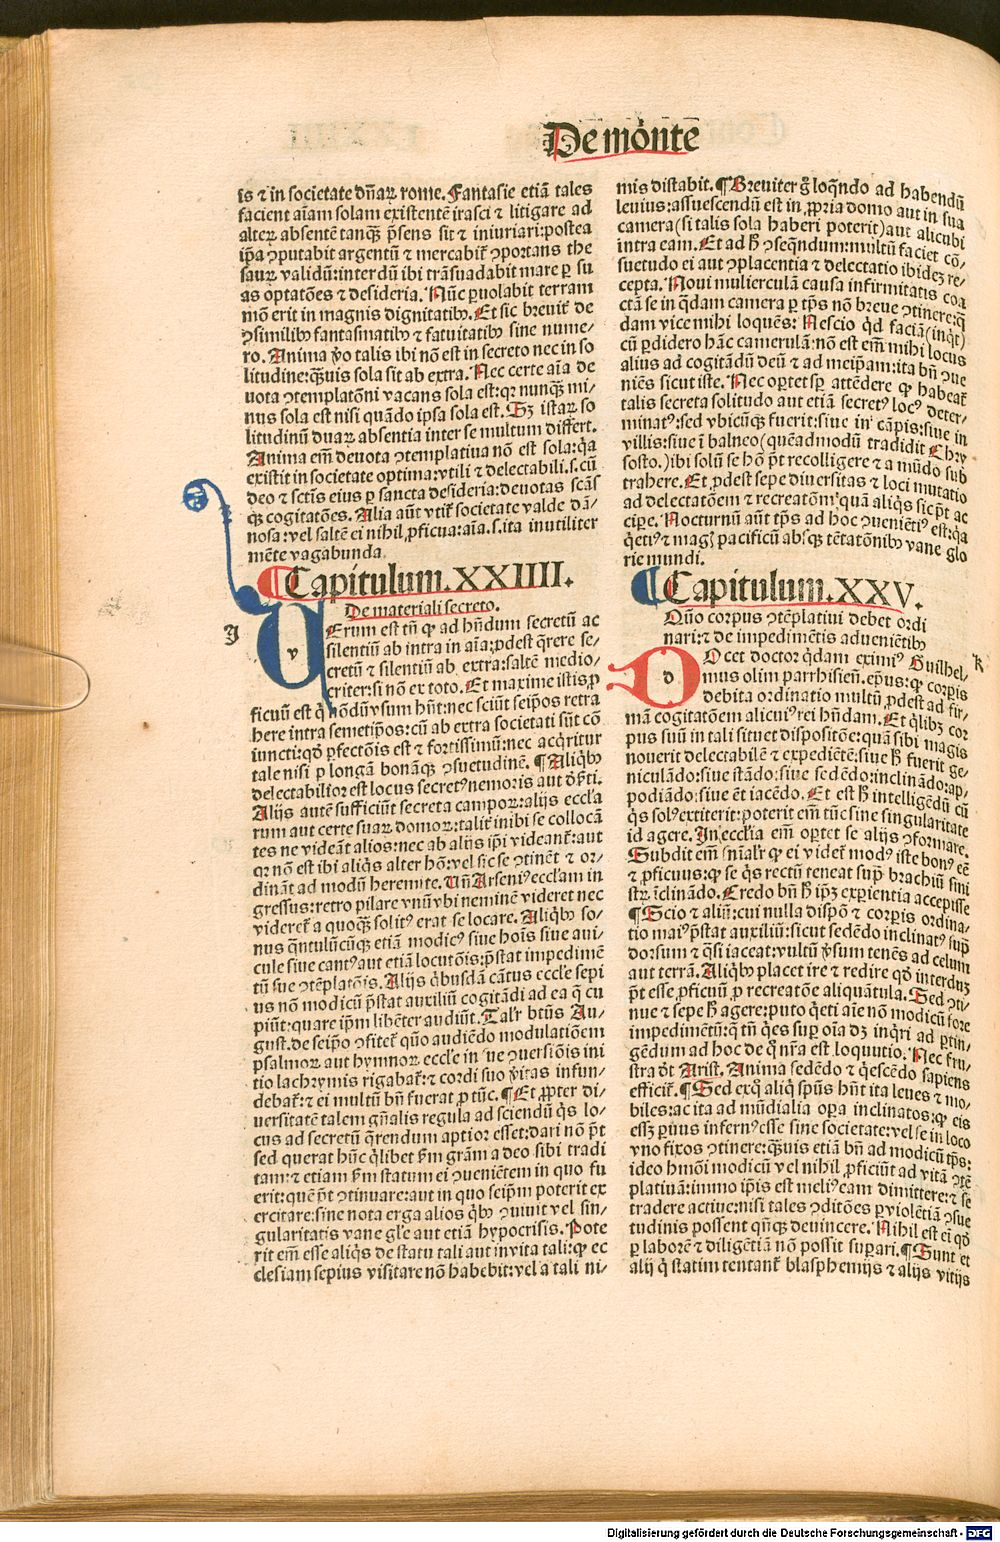 De mōnte
is ⁊ in societate dn̄aꝝ rome. Fantasie etiā tales
facient aīam solam existentē irasci ⁊ litigare ad
alteꝝ absentē tanqꝫ p̄sens sit ⁊ iniuriari: postea
ip̄a ꝯputabit argentū ⁊ mercabit᷑ ꝯportans the
sauꝝ validū: interdū ibi trāsuadabit mare ꝑ su
as optatōes ⁊ desideria. Nūc ꝑuolabit terram
mō erit in magnis dignitatibꝰ. Et sic breuit᷑ de
ꝯsimilibꝰ fantasmatibꝰ ⁊ fatuitatibꝰ sine nume-
ro. Anima v̄o talis ibi nō est in secreto nec in so
litudine: qꝫuis sola sit ab extra. Nec certe aīa de
uota ꝯtemplatōni vacans sola est: qꝛ nunqꝫ mi-
nus sola est nisi quādo ipsa sola est. Sꝫ istaꝝ so
litudinū duaꝝ absentia inter se multum differt.
Anima em̄ deuota ꝯtemplatiua nō est sola: q̇a
existit in societate optima: vtili ⁊ delectabili. s. cū
deo ⁊ sctīs eius ꝑ sancta desideria: deuotas scās
qꝫ cogitatōes. Alia aūt vtit᷑ societate valde dā-
nosa: vel saltē ei nihil ꝓficua: aīa. s. ita inutiliter
mēte vagabunda.
¶ Capitulum. XXIIII.
De materiali secreto.
J
v
Erum est tn̄ ꝙ ad hn̄dum secretū ac
silentiū ab intra in aīa: ꝓdest q̄rere se-
cretū ⁊ silentiū ab extra: saltē medio-
criter: si nō ex toto. Et maxime istis ꝓ
ficuū est q̇ nōdū vsum hn̄t: nec sciūt seip̄os retra
here intra semetip̄os: cū ab extra societati sūt cō
iuncti: qd̄ ꝑfectōis est ⁊ fortissimū: nec acq̇ritur
tale nisi ꝑ longā bonāqꝫ ꝯsuetudinē. ¶ Aliq̇bꝰ
delectabilior est locus secretꝰ nemoris aut d̓s̄ti.
Alijs autē sufficiūt secreta campoꝝ: alijs eccl̄a
rum aut certe suaꝝ domoꝝ: talit᷑ inibi se collocā
tes ne videāt alios: nec ab alijs ip̄i videant᷑: aut
qꝛ nō est ibi aliq̇s alter hō: vel sic se ꝯtinēt ⁊ or-
dināt ad modū heremite. Un̄ Arseniꝰ eccl̄am in
gressus: retro pilare vnū vbi neminē videret nec
videret᷑ a quoqꝫ solitꝰ erat se locare. Aliq̇bꝰ so-
nus q̄ntulūcūqꝫ etiā modicꝰ siue hoīs siue aui-
cule siue cantꝰ aut etiā locutōis: p̄stat impedimē
tū sue ꝯtēplatōis. Alijs q̇busdā cātus eccl̄e sepi
us nō modicū p̄stat auxiliū cogitādi ad ea q̄ cu
piūt: quare ip̄m libēter audiūt. Talr̄ btūs Au-
gust. de seip̄o ꝯfitet᷑ quō audiēdo modulatiōem
psalmoꝝ aut hymnoꝝ eccl̄e in sue ꝯuersiōis ini
tio lachrymis rigabat᷑: ⁊ cordi suo v̄itas infun-
debat᷑: ⁊ ei multū bn̄ fuerat ꝓ tūc. ¶ Et ꝓpter di-
uersitatē talem gn̄alis regula ad sciendū q̇s lo-
cus ad secretū q̄rendum aptior esset: dari nō p̄t
sed querat hūc q̇libet ẜm grām a deo sibi tradi
tam: ⁊ etiam ẜm statum ei ꝯueniētem in quo fu
erit: quē p̄t ꝯtinuare: aut in quo seip̄m poterit ex
ercitare: sine nota erga alios q̇bꝰ ꝯuiuit vel sin-
gularitatis vane gl̄e aut etiā hypocrisis. Pote
rit em̄ esse aliq̇s de statu tali aut in vita tali: ꝙ ec
clesiam sepius visitare nō habebit: vel a tali ni-
mis distabit. ¶ Breuiter g̊ loq̄ndo ad habendū
leuius: assuescendū est in ꝓpria domo aut in sua
camera (si talis sola haberi poterit) aut alicubi
intra eam. Et ad h̄ ꝯseq̄ndum: multū faciet cō-
suetudo ei aut ꝯplacentia ⁊ delectatio ibideꝫ re-
cepta. Noui mulierculā causa infirmitatis coa
ctā se in q̄dam camera ꝑ tp̄s nō breue ꝯtinere: q̄
dam vice mihi loquēs: Nescio qd̄ faciā (inq̇t)
cū ꝑdidero hāc camerulā: nō est em̄ mihi locus
alius ad cogitādū deū ⁊ ad meip̄am: ita bn̄ ꝯue
niēs sicut iste. Nec oꝑtet sp̄ attēdere ꝙ habeat᷑
talis secreta solitudo aut etiā secretꝰ locꝰ deter-
minatꝰ: sed vbicūqꝫ fuerit: siue in cāpis: siue in
villis: siue ī balneo (quēadmodū tradidit Chry
sosto.) ibi solū se hō p̄t recolligere ⁊ a mūdo sub
trahere. Et ꝓdest sepe diuersitas ⁊ loci mutatio
ad delectatōem ⁊ recreatōm: quā aliq̇s sic p̄t ac
cipe. Nocturnū aūt tp̄s ad hoc ꝯueniētiꝰ est: q̇a
q̇etiꝰ ⁊ magꝭ pacificū absqꝫ tētatōnibꝰ vane glo
rie mundi.
¶ Capitulum. XXV.
Quō corpus ꝯtēplatiui debet ordi
nari: ⁊ de impedimētis aduenientibꝰ
K
d
Ocet doctor q̇dam eximiꝰ Guilhel-
mus olim parrhisien̄. ep̄us: ꝙ corꝑis
debita ordinatio multū ꝓdest ad fir-
mā cogitatōem alicuiꝰ rei hn̄dam. Et q̇libꝫ cor
pus suū in tali situ et dispositōe: quā sibi magis
nouerit delectabilē ⁊ expediētē: siue h̄ fuerit ge-
niculādo: siue stādo: siue sedēdo: inclinādo: ap-
podiādo: siue ēt iacēdo. Et est h̄ intelligēdū cū
q̇s solꝰ extiterit: poterit em̄ tūc sine singularitate
id agere. In eccl̄ia em̄ oꝑtet se alijs ꝯformare.
Subdit em̄ sn̄ialr̄ ꝙ ei videt᷑ modꝰ iste bonꝰ eē
⁊ ꝓficuus: ꝙ se q̇s rectū teneat suꝑ brachiū sini
stꝝ īclinādo. Credo bn̄ h̄ ip̄ꝫ exꝑientia accepisse
¶ Scio ⁊ aliū: cui nulla dispō ⁊ corꝑis ordina-
tio maiꝰ p̄stat auxiliū: sicut sedēdo inclinatꝰ suꝑ
dorsum ⁊ q̄si iaceat: vultū v̄sum tenēs ad celum
aut terrā. Aliq̇bꝰ placet ire ⁊ redire qd̄ interduꝫ
p̄t esse ꝓficuū ꝓ recreatōe aliquātula. Sed ꝯti-
nue ⁊ sepe h̄ agere: puto q̇eti aīe nō modicū fore
impedimētū: q̄ tn̄ q̇es suꝑ oīa dꝫ inq̇ri ad ꝑtin-
gēdum ad hoc de q̇ nr̄a est loquutio. Nec fru-
stra d̓t Arist. Anima sedēdo ⁊ q̇escēdo sapiens
efficit᷑. ¶ Sed exq̇ aliq̇ sp̄us hn̄t ita leues ⁊ mo-
biles: ac ita ad mūdialia oꝑa inclinatos: ꝙ eis
essꝫ ꝑuius infernꝰ esse sine societate: vel se in loco
vno fixos ꝯtinere: qꝫuis etiā bn̄ ad modicū tp̄s:
ideo hmōi modicū vel nihil ꝓficiūt ad vitā ꝯtē
platiuā: immo ip̄is est meliꝰ eam dimittere: ⁊ se
tradere actiue: nisi tales ꝯditōes ꝑ violētiā ꝯsue
tudinis possent qn̄qꝫ deuincere. Nihil est ei qd̄
ꝑ laborē ⁊ diligētiā nō possit suꝑari. ¶ Sunt et
alij q̇ statim tentant᷑ blasphemijs ⁊ alijs vitijs
Digitalisierung gefördert durch die Deutsche Forschungsgemeinschaft - DFG